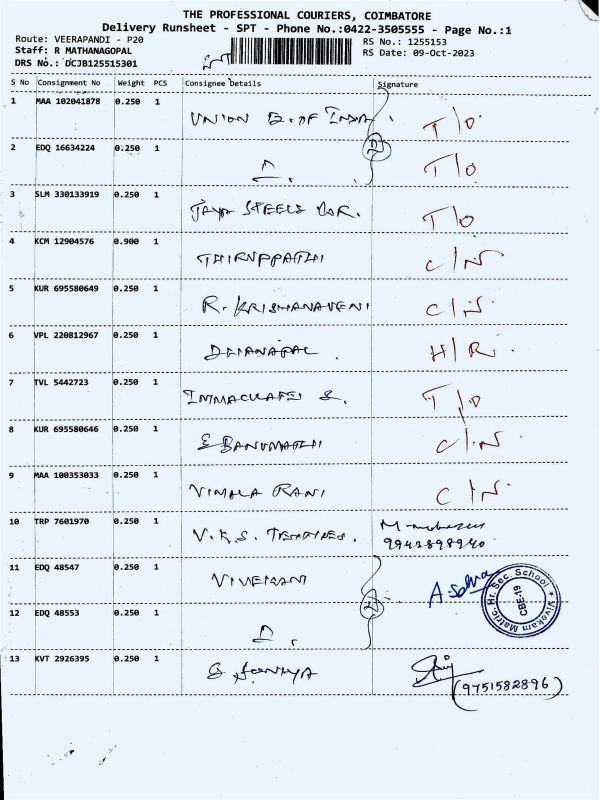 THE PROFESSIONAL COURIERS, COIMBATORE
Delivery Runsheet - SPT - Phone No.:0422-3505555 - Page No.:1
Route: VEERAPANDI - P20
RS No.: 1255153
Staff: R MATHANAGOPAL
RS Date: 09-Oct-2023
DRS No.: DCJB125515301
S No Consignment No Weight PCS Consignee Details Signature
1 MAA 102041878 0.250 1 UNION B. OF INDIA T/O
2 EDQ 16634224 0.250 1 T/O
3 SLM 330133919 0.250 1 JAYA STEELS COR. T/O
4 KCM 12904576 0.900 1 THIRUPPATHI C/N
5 KUR 695580649 0.250 1 R. KRISHANAVENI C/N.
6 VPL 220812967 0.250 1 DHANAPAL. H/R.
7 TVL 5442723 0.250 1 IMMACULATE S. T/O
8 KUR 695580646 0.250 1 BANUMATHI C/N.
9 MAA 100353033 0.250 1 VIMALA RANI C/N.
10 TRP 7601970 0.250 1 V.K.S.
9943898940
11 EDQ 48547 0.250 1 VIVEKAM
Vivekam Matric. Hr. Sec. School
CBE-19
12 EDQ 48553 0.250 1
13 KVT 2926395 0.250 1
(9751582896)